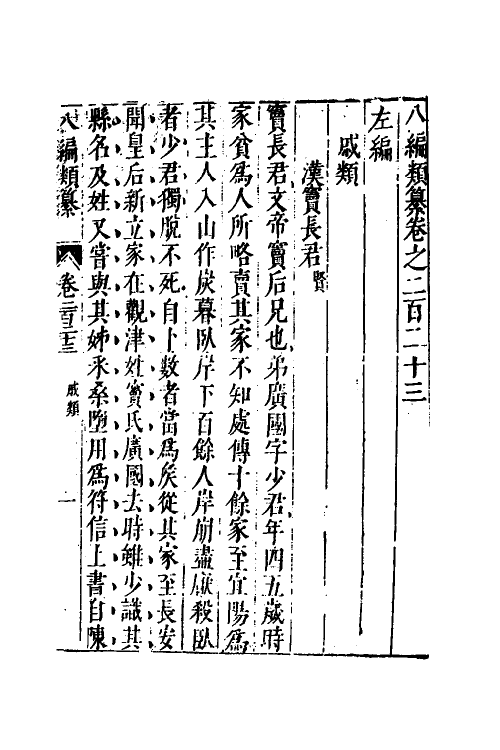 八編類纂卷之二百二十三
左編
戚類
漢竇長君賢
竇長君文帝竇后兄也弟廣國字少君年四五歲時
家貧爲人所略賣其家不知處傳十餘家至宜陽爲
其主人入山作炭暮臥岸下百餘人岸崩盡壓殺臥
者少君獨脫不死自卜數者當爲矦從其家至長安
聞皇后新立家在觀津姓竇氏廣國去時雖少識其
縣名及姓又嘗與其姊采桑墮用爲符信上書自陳
八編類纂 卷二百二十三 戚類 一